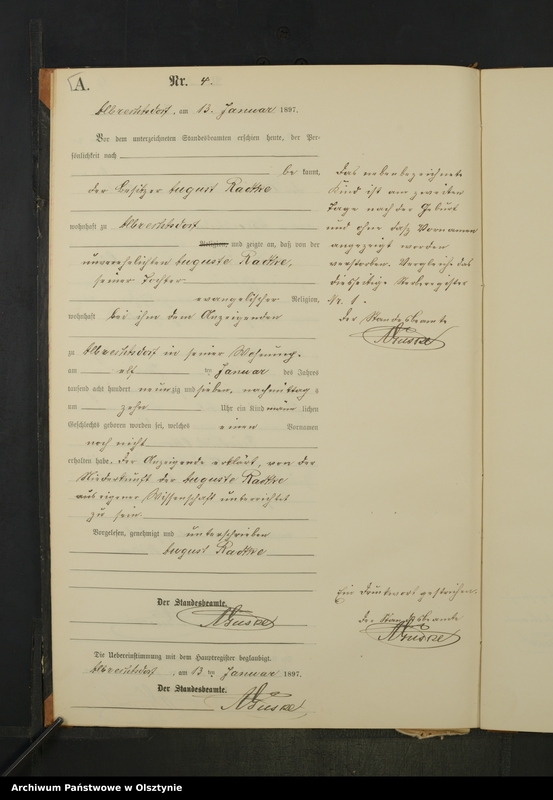 A.
Nr. 4.
Albrechtsdorf, am 13. Januar 1897.
Vor dem unterzeichneten Standesbeamten erschien heute, der Per-
sönlichkeit nach
be kannt,
der Besitzer August Radtke
wohnhaft zu Albrechtsdorf
Religion, und zeigte an, daß von der
unverehelichten Auguste Radtke,
seiner Tochter
evangelischer Religion,
wohnhaft bei ihm dem Anzeigenden
zu Albrechtsdorf in seiner Wohnung
am elf ten Januar des Jahres
tausend acht hundert neunzig und sieben, nachmittag s
um zehn Uhr ein Kind männ lichen
Geschlechts geboren worden sei, welches einen Vornamen
noch nicht
erhalten habe. Der Anzeigende erklärt, von der
Niederkunft der Auguste Radtke
aus eigener Wissenschaft unterrichtet
zu sein.
Vorgelesen, genehmigt und unterschrieben
August Radtke
Der Standesbeamte.
Die Uebereinstimmung mit dem Hauptregister beglaubigt.
Albrechtsdorf, am 13ten Januar 1897.
Der Standesbeamte.
Das nebenbezeichnete
Kind ist am zweiten
Tage nach der Geburt
und ohne daß Vornamen
angezeigt worden
verstorben. Vergleiche das
diesseitige Sterberegister
Nr. 1.
Der Standesbeamte
Ein Druckwort gestrichen.
Der Standesbeamte
Archiwum Państwowe w Olsztynie